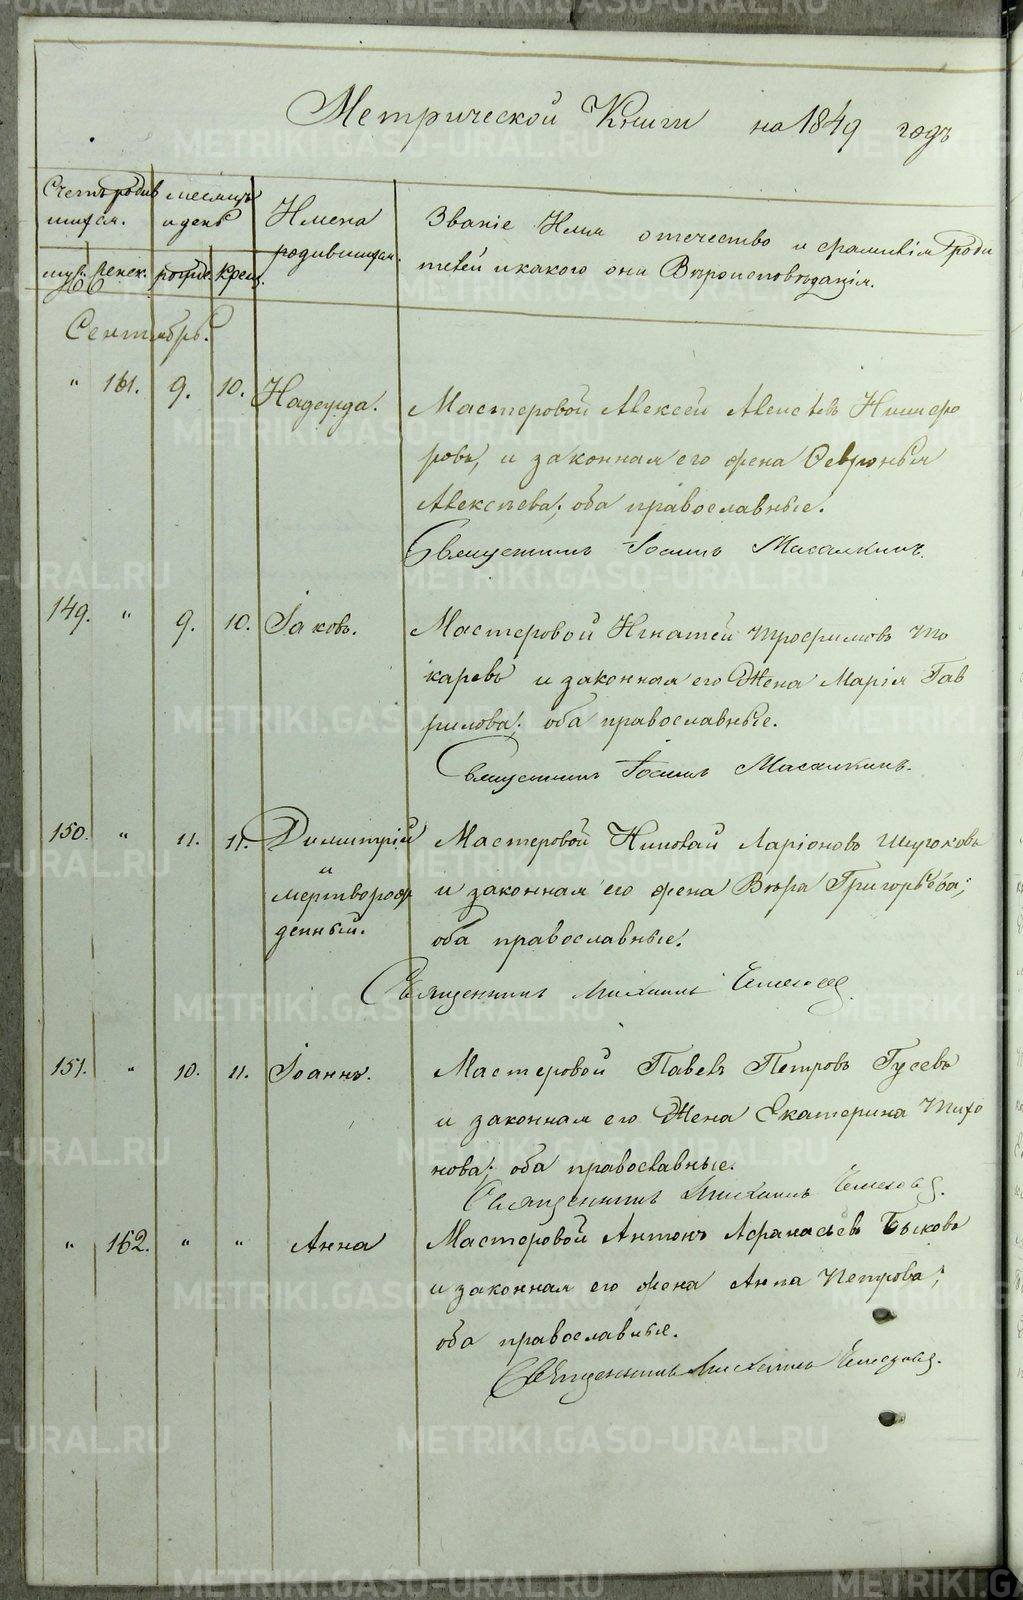 Метрической Книги на 1849 годъ
Счетъ родив
шихся.
месяцъ
и день
Имена
родившихся.
Званіе Имя отечество и фамилія роди
телей и какого они Вѣроисповѣданія.
муж. женск. рожд. крещ.
Сентябрь.
" 161. 9. 10. Надежда. Мастеровой Алексей Алексѣевъ
ровъ, и законная его жена Февронья
Алексѣева; оба православные.
Священникъ Іоаннъ Масалкинъ.
149. " 9. 10. Іаковъ. Мастеровой Игнатей Трофимовъ То
каревъ и законная его Жена Марія Гав
рилова; оба православные.
Священникъ Іоаннъ Масалкинъ.
150. " 11. 11. Димитрій Мастеровой Николай Ларіоновъ
и
мертворож
денный.
и законная его жена Вѣра Григорьева;
оба православные.
Священникъ Михаилъ
151. " 10. 11. Іоаннъ. Мастеровой Павелъ Петровъ Гусевъ
и законная его Жена Екатерина Тихо
нова; оба православные.
Священникъ Михаилъ
" 162. " " Анна Мастеровой Антонъ Афанасьевъ Быковъ
и законная его жена Анна Петрова;
оба православные.
Священникъ Михаилъ
METRIKI.GASO-URAL.RU